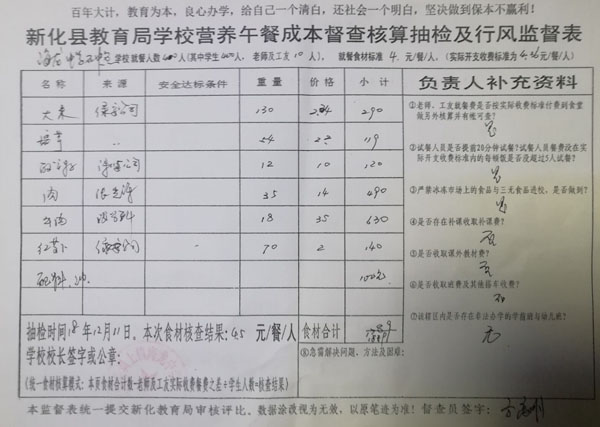 百年大计，教育为本，良心办学，给自己一个清白，还社会一个明白，坚决做到保本不赢利！
新化县教育局学校营养午餐成本督查核算抽检及行风监督表
学校就餐人数 人（其中学生 人，老师及工友 10 人），就餐食材标准 4. 元/餐/人，（实际开支收费标准为 元/餐/人）
名称 来源 安全达标条件 重量 价格 小计 负责人补充资料
大米 130 290
54 119
12 10 120
肉 35 14 490
18 35 630
红萝卜 70 2 140
①老师、工友就餐费是否按实际收费标准付费到食堂
做另外核算并有帐可查？
是
②试餐人员是否提前20分钟试餐？试餐人员餐费没在实
际开支收费标准内的每顿饭是否没超过5人试餐？
是
③严禁冰冻市场上的食品与三无食品进校，是否做到？
是
④是否存在补课收取补课费？
否
⑤是否收取课外教材费？
否
⑥是否收取班费及其他搭车收费？
否
⑦该辖区内是否存在非法办学的学前班与幼儿班？
无
抽检时间18年12月11日。本次食材核查结果：4.5 元/餐/人 食材合计
学校校长签字或公章：
⑧急需解决问题、方法及困难：
（统一食材核算模式：本页食材合计数-老师及工友实际收费餐费之差÷学生人数=核查结果）
本监督表统一提交新化教育局审核评比、数据涂改视为无效，以原笔迹为准！督查员签字：